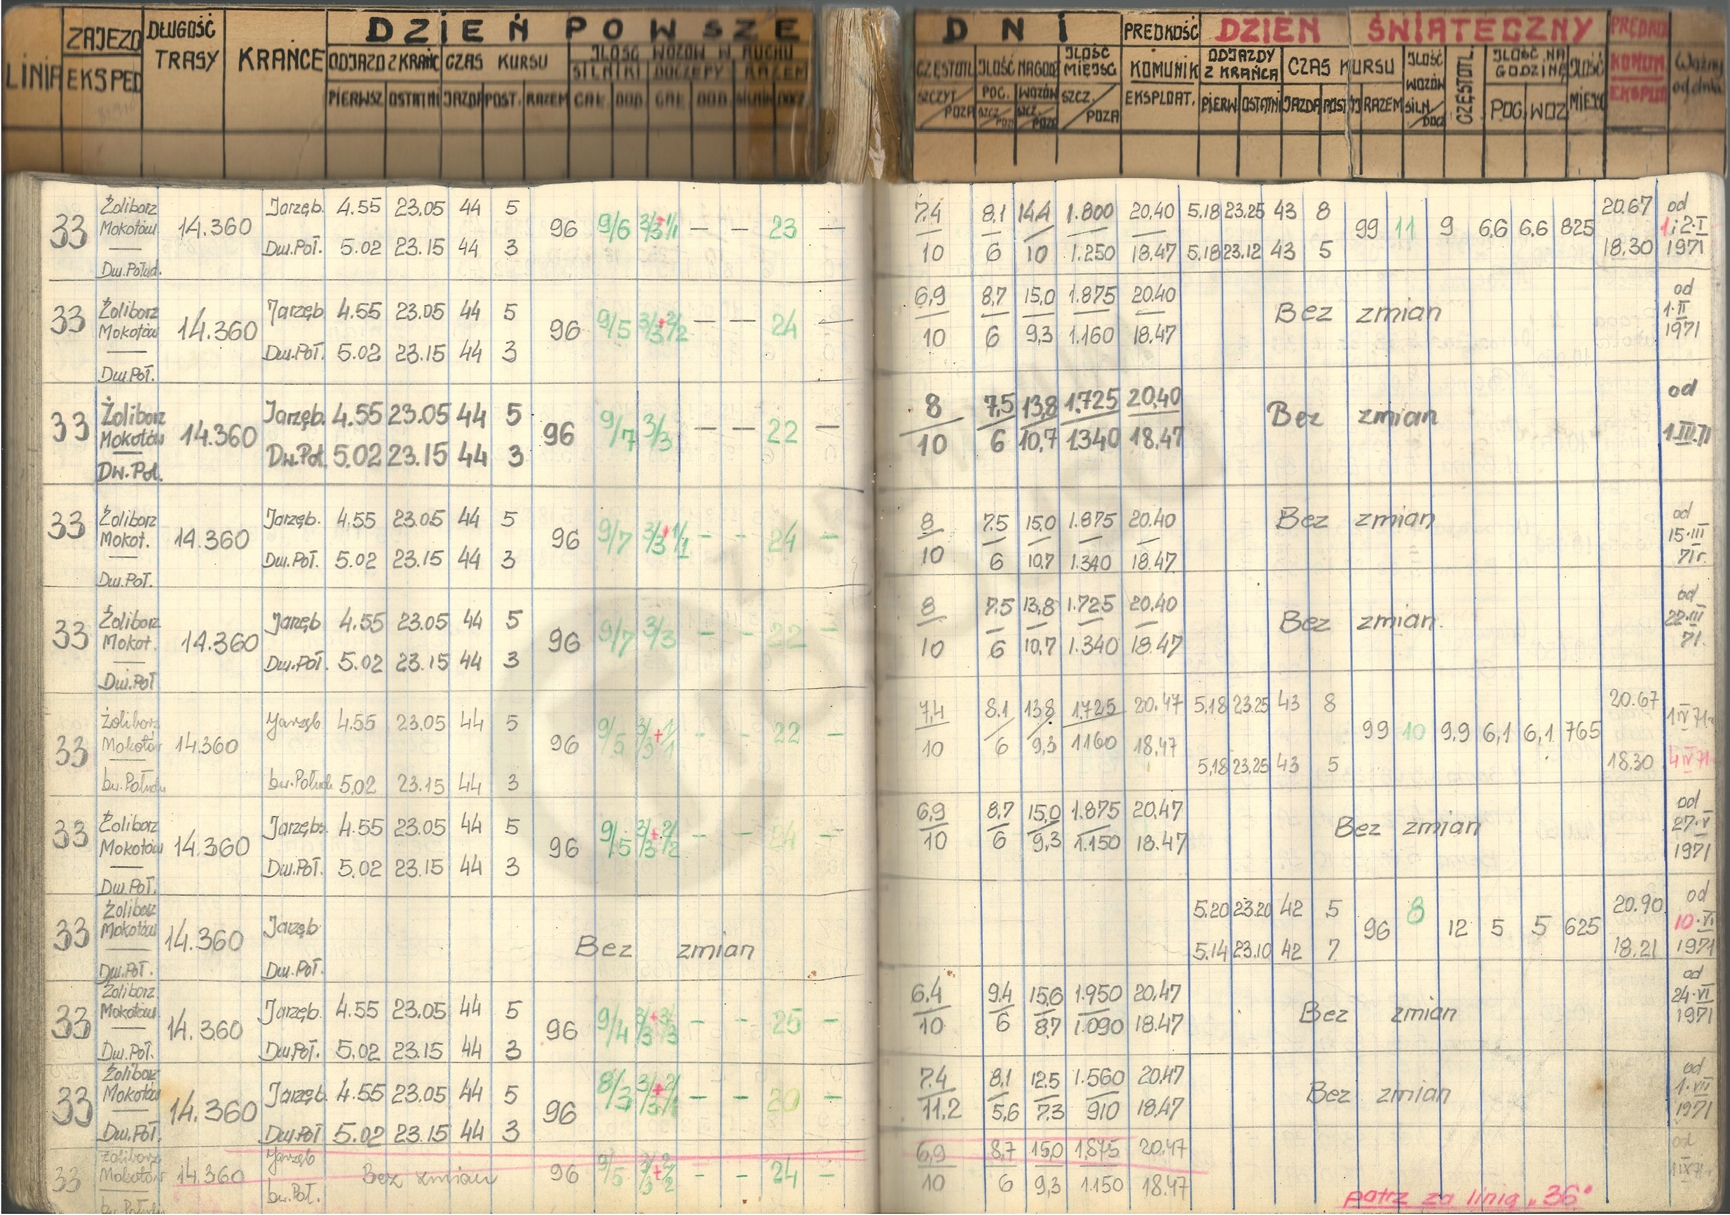 LINIA ZAJEZD EKSPED DŁUGOŚĆ TRASY KRAŃCE DZIEŃ POWSZE
ODJAZD Z KRAŃC CZAS KURSU ILOŚĆ WOZÓW W RUCHU
SILNIKI DOCZEPY RAZEM
PIERWSZ. OSTATNI JAZDA POST. RAZEM CAŁ. DOD. CAŁ. DOD.
DNI PRĘDKOŚĆ DZIEŃ ŚWIĄTECZNY
CZĘSTOTL. ILOŚĆ NA GODZ ILOŚĆ MIEJSC KOMUNIK EKSPLOAT. ODJAZDY Z KRAŃCA CZAS KURSU ILOŚĆ WOZÓW SILN/DOCZ CZĘSTOTL. ILOŚĆ NA GODZINĘ ILOŚĆ MIEJSC KOMUN. EKSPLO Ważny od dnia
SZCZYT/POZA POC. WOZÓW SZCZ./POZA PIERW OSTATNI JAZDA POST RAZEM POC. WOZ
33 Żoliborz Mokotów — Dw.Połud. 14.360
Jarzęb. 4.55 23.05 44 5
Dw.Poł. 5.02 23.15 44 3
96 9/6 3/3+1/1 — — 23 —
7.4 8,1 14,4 1.800 20,40 5,18 23.25 43 8
10 6 10 1.250 18.47 5,18 23.12 43 5
99 11 9 6,6 6,6 825
20.67 18.30 od 1 i 2·I 1971
33 Żoliborz Mokotów — Dw.Poł. 14.360
Jarzęb. 4.55 23.05 44 5
Dw.Poł. 5.02 23.15 44 3
96 9/5 3/3+2/2 — — 24 —
6,9 8,7 15,0 1.875 20.40
10 6 9,3 1.160 18.47
Bez zmian od 1·II 1971
33 Żoliborz Mokotów — Dw.Poł. 14.360
Jarzęb. 4.55 23.05 44 5
Dw.Poł. 5.02 23.15 44 3
96 9/7 3/3 — — 22 —
8 7,5 13,8 1.725 20,40
10 6 10,7 1340 18.47
Bez zmian od 1.III.71
33 Żoliborz Mokot. — Dw.Poł. 14.360
Jarzęb. 4.55 23.05 44 5
Dw.Poł. 5.02 23.15 44 3
96 9/7 3/3+1/1 - - 24 -
8 7.5 15,0 1.875 20.40
10 6 10,7 1.340 18.47
Bez zmian od 15·III 71r.
33 Żoliborz Mokot. — Dw.Poł 14.360
Jarzęb 4.55 23.05 44 5
Dw.Poł. 5.02 23.15 44 3
96 9/7 3/3 - - 22 -
8 7.5 13,8 1.725 20.40
10 6 10,7 1.340 18.47
Bez zmian. od 22·III 71.
33 Żoliborz Mokotów — Dw.Połudn 14.360
Jarzęb 4.55 23.05 44 5
Dw.Połudn 5.02 23.15 44 3
96 9/5 3/3+1/1 - - 22 -
7,4 8.1 13,8 1.725 20,47 5,18 23.25 43 8
10 6 9,3 1160 18.47 5,18 23,25 43 5
99 10 9,9 6,1 6,1 765
20.67 18.30 1·IV·71 4·IV·71
33 Żoliborz Mokotów — Dw.Poł. 14.360
Jarzęb. 4.55 23.05 44 5
Dw.Poł. 5.02 23.15 44 3
96 9/5 3/3+2/2 - - 24 -
6,9 8,7 15,0 1.875 20,47
10 6 9,3 1.150 18.47
Bez zmian od 27·V 1971
33 Żoliborz Mokotów — Dw.Poł. 14.360
Jarzęb
Dw.Poł.
Bez zmian
5.20 23.20 42 5
5.14 23.10 42 7
96 8 12 5 5 625
20.90 18.21 od 10·VI 1971
33 Żoliborz Mokotów — Dw.Poł. 14.360
Jarzęb. 4.55 23.05 44 5
Dw.Poł. 5.02 23.15 44 3
96 9/4 3/3+3/3 - - 25 -
6.4 9.4 15,6 1.950 20,47
10 6 8,7 1.090 18.47
Bez zmian od 24·VI 1971
33 Żoliborz Mokotów — Dw.Poł. 14.360
Jarzęb. 4.55 23.05 44 5
Dw.Poł 5.02 23.15 44 3
96 8/3 3/3+2/1 - - 20 -
7.4 8,1 12.5 1.560 20,47
11,2 5,6 7.3 910 18.47
Bez zmian od 1·VII 1971
33 Żoliborz Mokotów 14.360
Jarzęb
Dw.Poł.
Bez zmian 96 9/5 3/3+2/2 - - 24 -
6,9 8,7 15,0 1,875 20.47
10 6 9,3 1.150 18.47
od
patrz za linią „36"